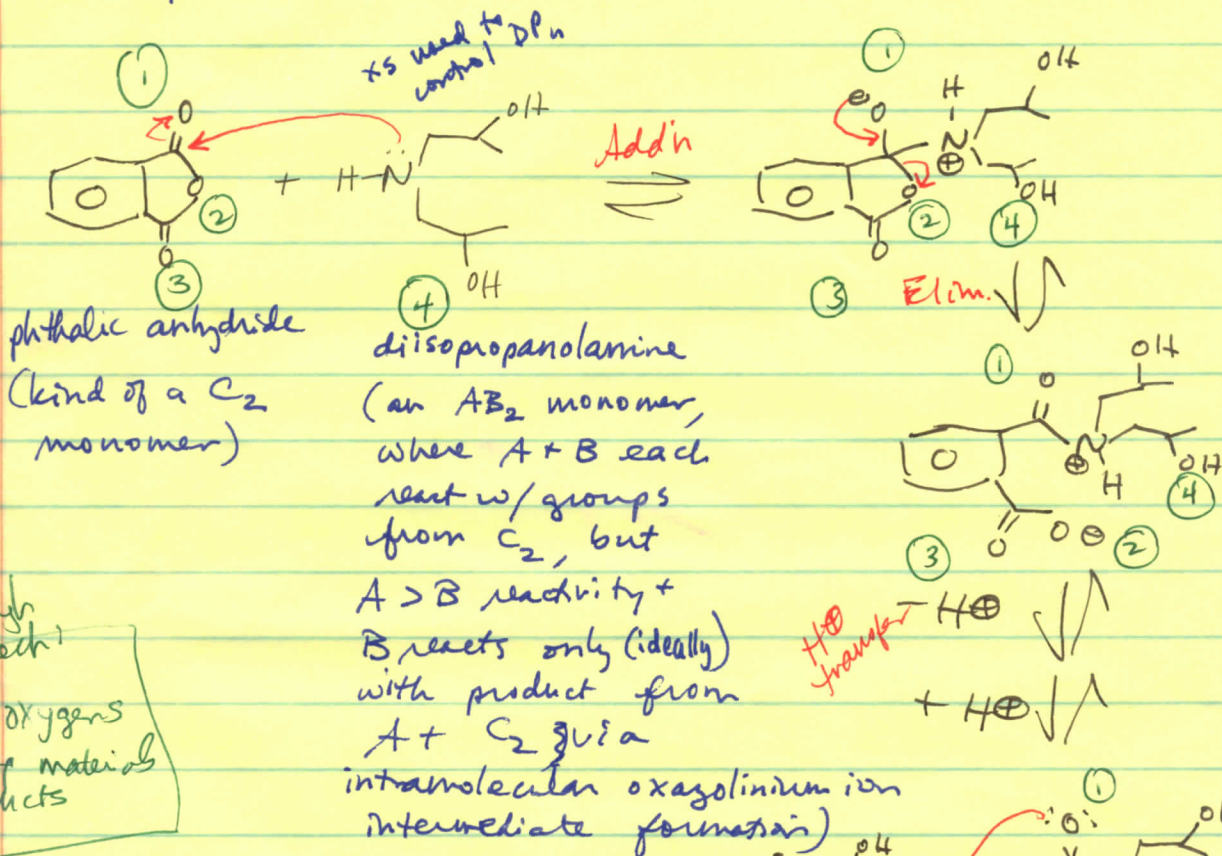 xs used to DPn
control
①
O
②
O
③
O
+
H-N
OH
OH
④
Add'n
①
⊖
O
H
N
⊕
OH
OH
O
②
④
O
③
Elim.
phthalic anhydride
(kind of a C2
monomer)
diisopropanolamine
(an AB2 monomer,
where A + B each
react w/ groups
from C2, but
A > B reactivity +
B reacts only (ideally)
with product from
A + C2 via
intramolecular oxazolinium ion
intermediate formation)
①
O
OH
N
⊕
H
OH
④
O
O ⊖
②
③
- H⊕
H⊕
transfer
+ H⊕
oxygens
materials
①
:O:
OH